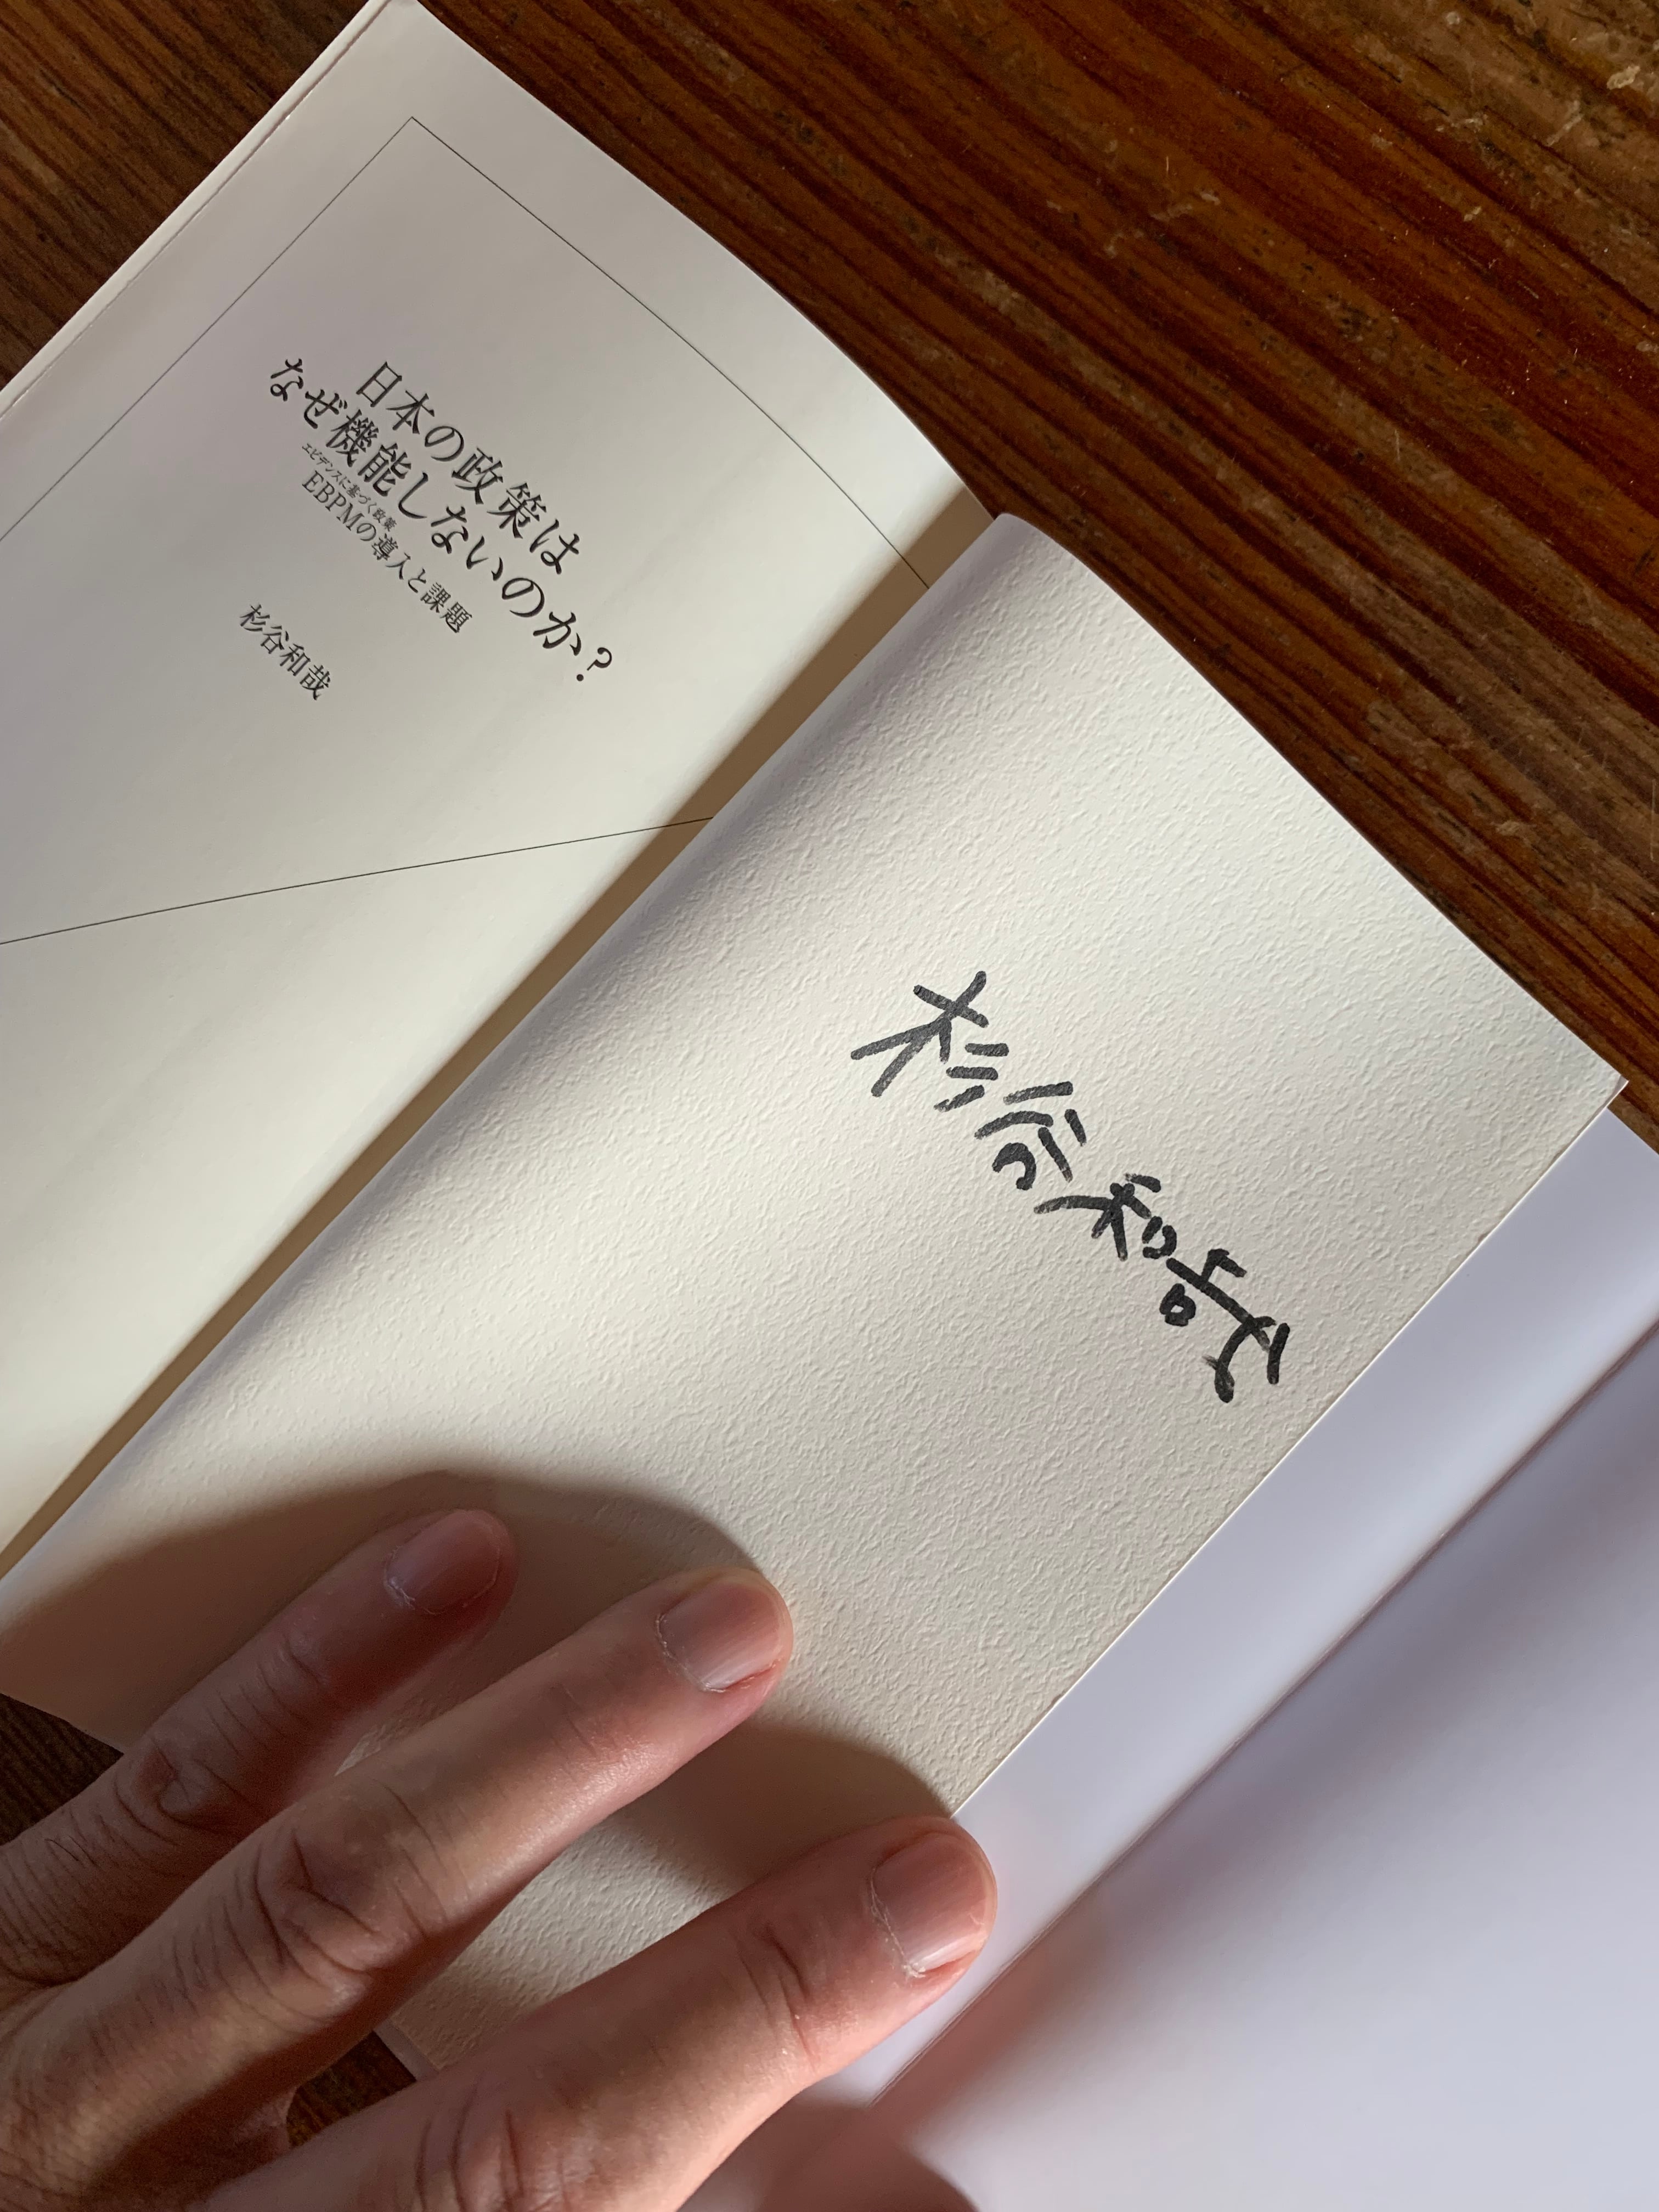 日本の政策は
なぜ機能しないのか?
エビデンスに基づく政策
EBPMの導入と課題
杉谷和哉
杉谷和哉